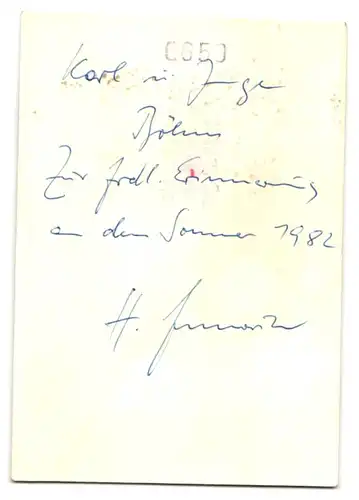 (65)
Karl u. Inge
Böhm
Zur frdl. Erinnerung
an den Sommer 1982
H.